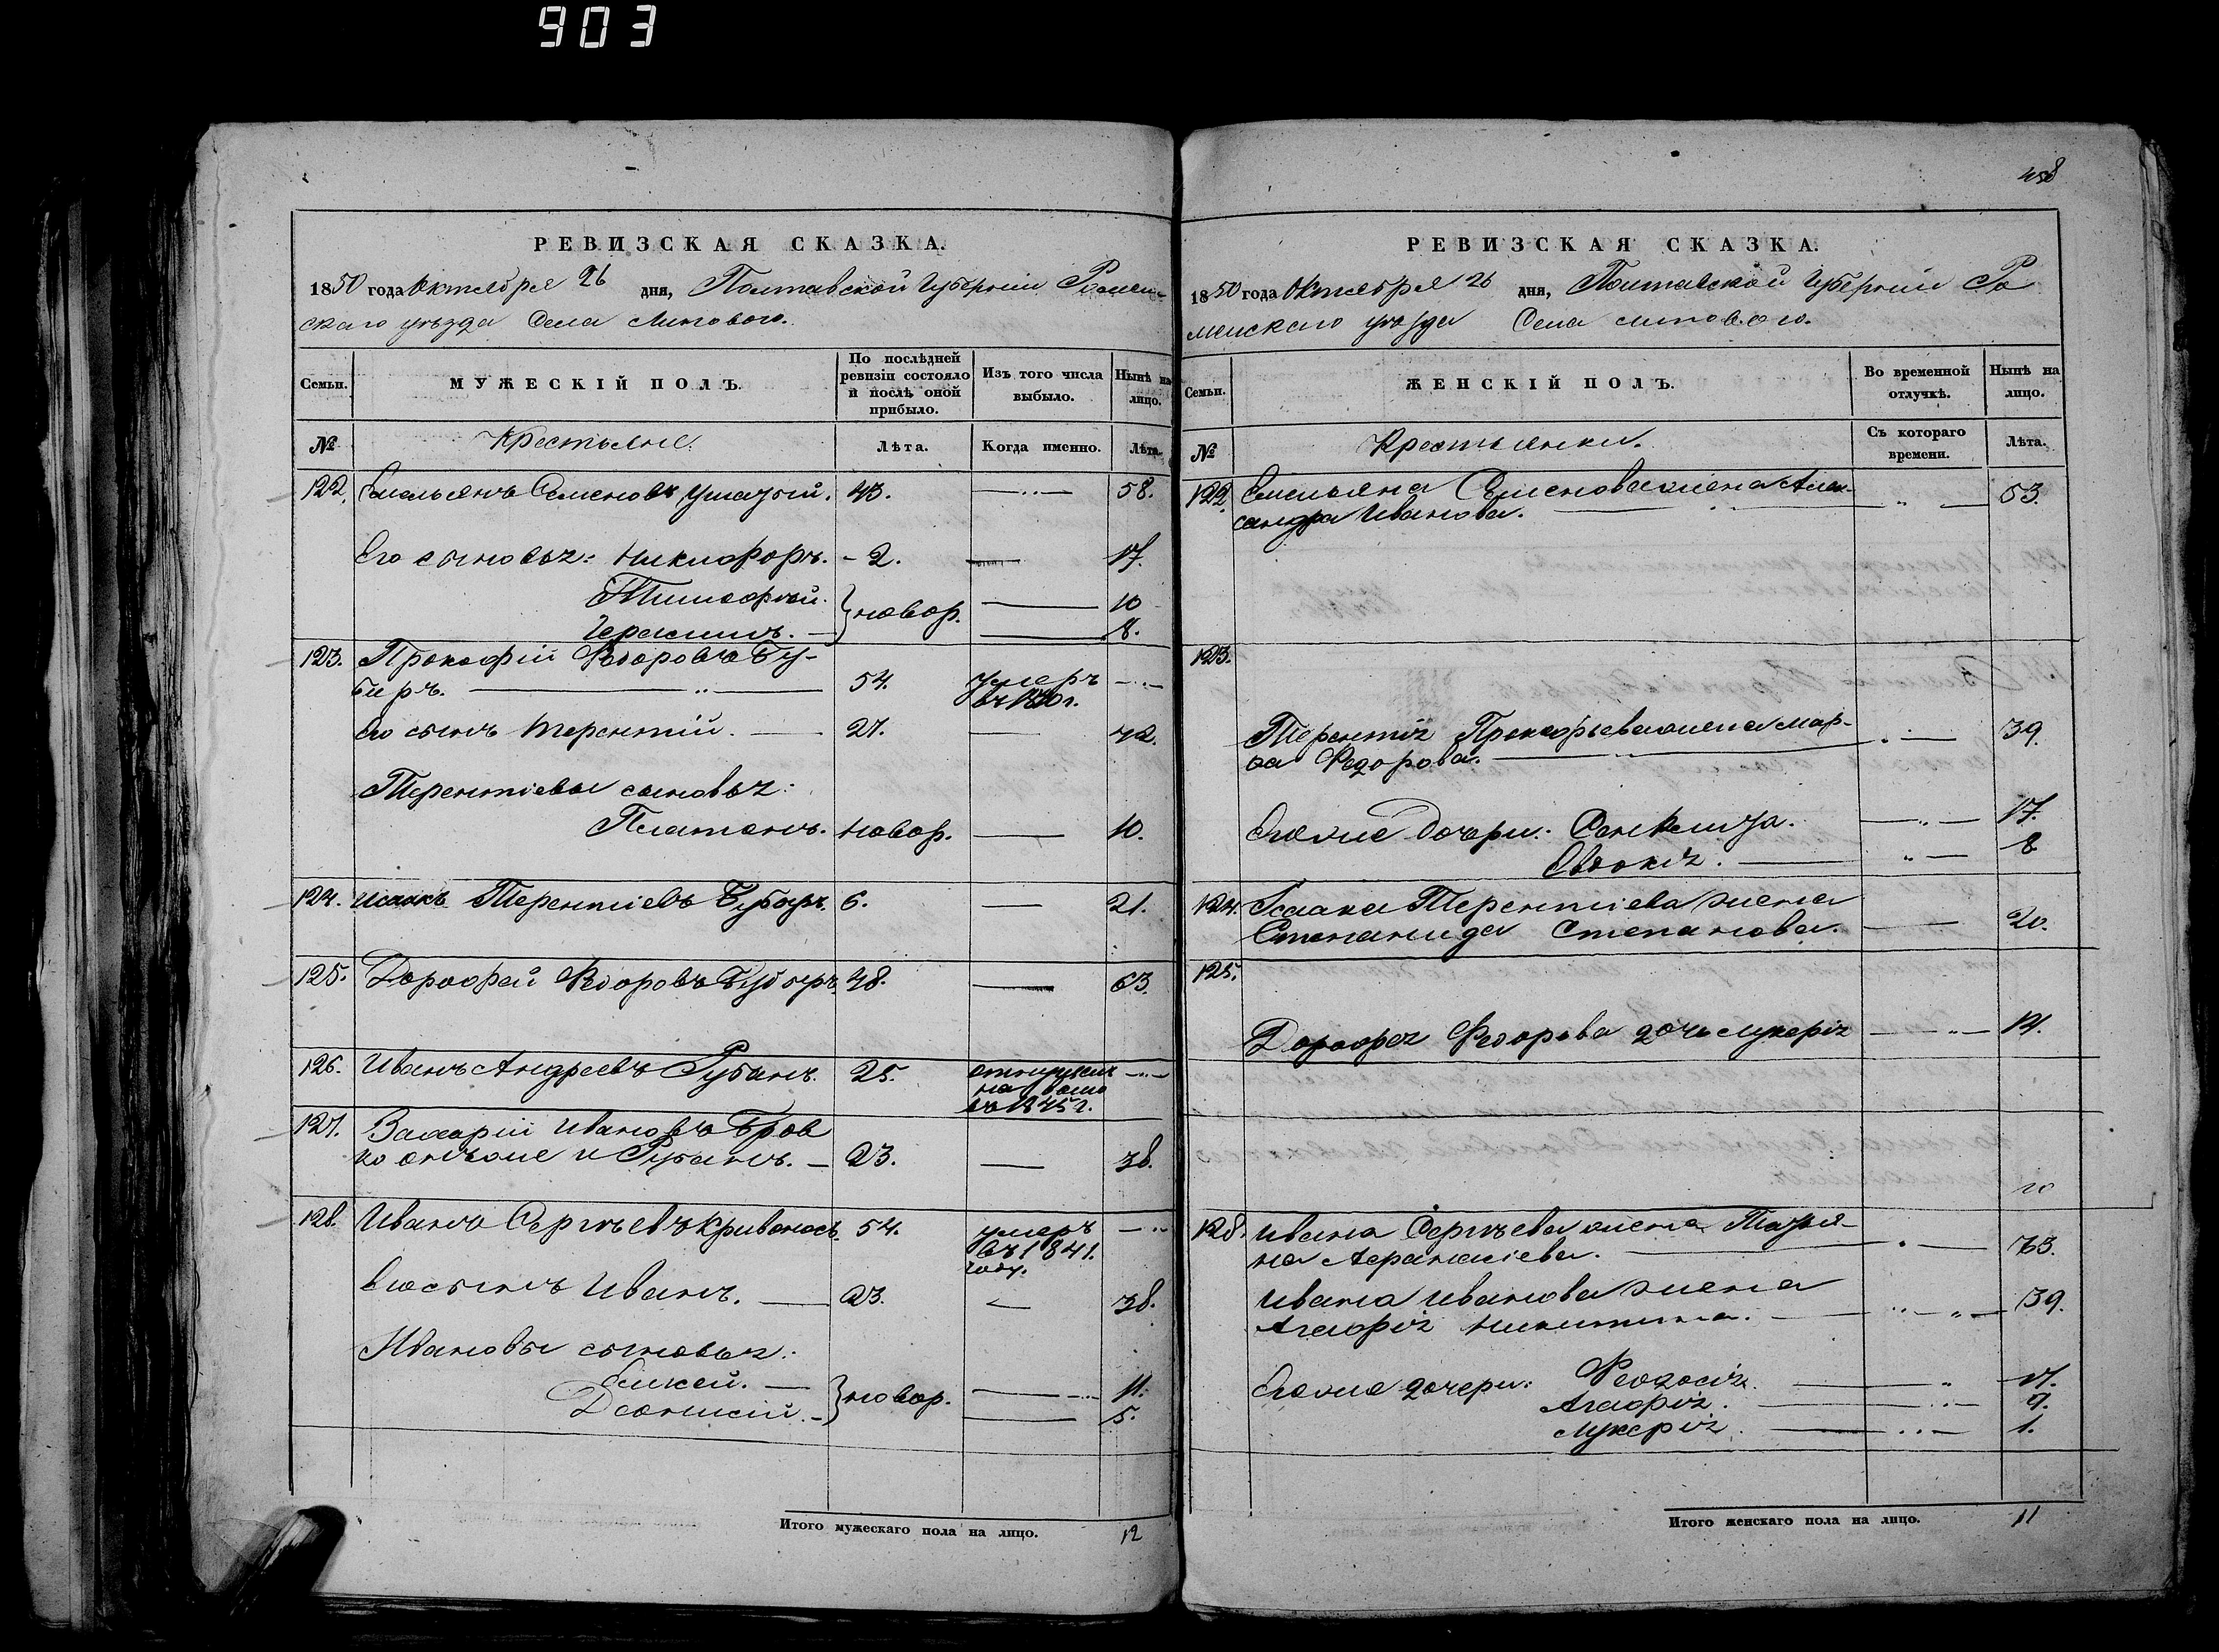 903
РЕВИЗСКАЯ СКАЗКА.
1850 года Октября 26 дня, Полтавской Губерніи Ромен-
скаго уѣзда Села Липового.
Семьи.
МУЖЕСКІЙ ПОЛЪ.
По послѣдней ревизіи состояло и послѣ оной прибыло.
Изъ того числа выбыло.
Нынѣ на лицо.
№
Крестьяне.
Лѣта.
Когда именно.
Лѣта.
122. Емельянъ Семеновъ 43. 58.
Его сыновья: Никифоръ. 2. 17.
Тимофѣй. новор. 10
Герасимъ. 8.
123. Прокофій Федоровъ Гу-
биръ. 54. умеръ
въ 1840 г.
Его сынъ Терентій. 27. 42.
Терентіевы сыновья:
Платонъ. новор. 10.
124. Исаакъ Терентіевъ 6. 21.
125. Дорофей Федоровъ 48. 63.
126. Иванъ Андреевъ Рубанъ. 25. отпущенъ
на волю
въ 1845 г.
127. Захарій Ивановъ Бров
ко онъ же и Рубанъ. 23. 38.
128. Иванъ Сергѣевъ Кривоносъ 54. умеръ
въ 1841.
году.
Его сынъ Иванъ. 23. 38.
Ивановы сыновья:
Елисей. новор. 11.
Діонисій. 5.
Итого мужескаго пола на лицо. 12
458
РЕВИЗСКАЯ СКАЗКА.
1850 года Октября 26 дня, Полтавской Губерніи Ро
менскаго уѣзда Села Липового.
Семьи.
ЖЕНСКІЙ ПОЛЪ.
Во временной отлучкѣ.
Нынѣ на лицо.
№
Крестьянки.
Съ котораго времени.
Лѣта.
122. Емельяна Семенова жена Алек-
сандра Иванова. 53.
123.
Терентія Прокофьева жена Мар-
фа Федорова. 39.
Его же дочери: 17.
Евдокія. 8
124. Исаака Терентіева жена
Степанида Степанова. 20.
125.
Дорофея Федорова дочь Лукерія 14.
128. Ивана Сергѣева жена Татья-
на Афанасіева. 63.
Ивана Иванова жена
Агафія Никитина. 39.
Его же дочери: Феодосія. 17.
Агафія. 9.
Лукерія. 1.
Итого женскаго пола на лицо. 11